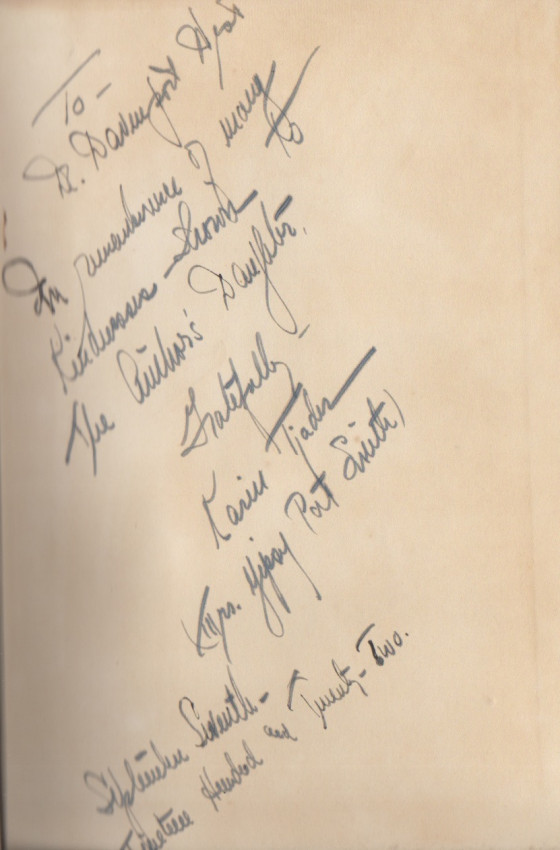 To -
Dr. Davenport West
In remembrance of many
Kindnesses Shown to
The Author's Daughter.
Gratefully -
Karin Tjader
(Mrs. Port Smith)
September Seventh -
Nineteen Hundred and Twenty-Two.